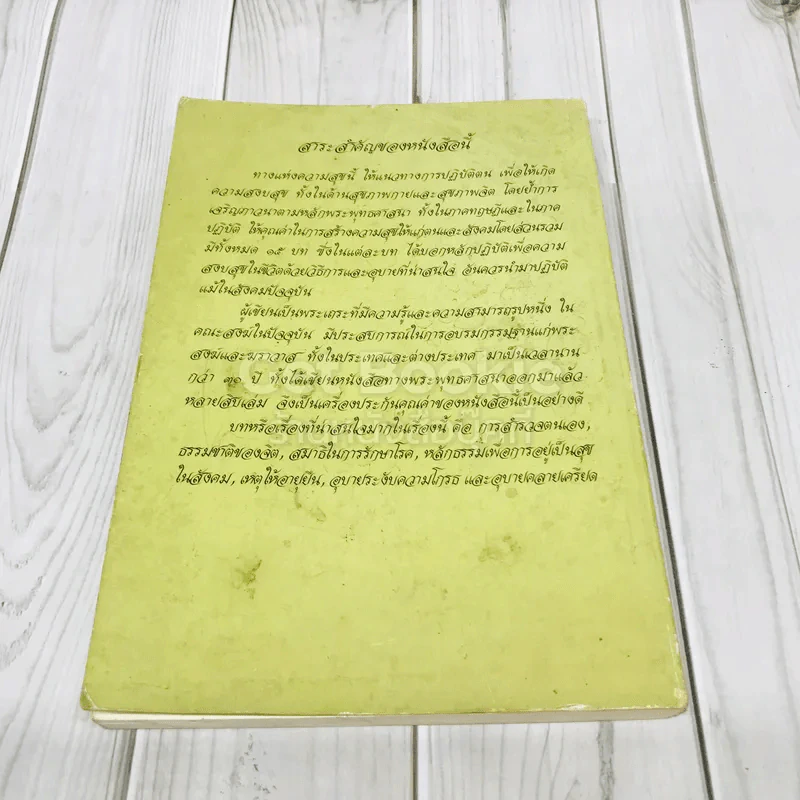 สาระสำคัญของหนังสือนี้
ทางแห่งความสุขนี้ ให้แนวทางการปฏิบัติตน เพื่อให้เกิด
ความสงบสุข ทั้งในด้านสุขภาพกายและสุขภาพจิต โดยย้ำการ
เจริญภาวนาตามหลักพระพุทธศาสนา ทั้งในภาคทฤษฎีและในภาค
ปฏิบัติ ให้คุณค่าในการสร้างความสุขให้แก่ตนและสังคมโดยส่วนรวม
มีทั้งหมด ๑๕ บท ซึ่งในแต่ละบท ได้บอกหลักปฏิบัติเพื่อความ
สงบสุขในชีวิตด้วยวิธีการและอุบายที่น่าสนใจ อันควรนำมาปฏิบัติ
แม้ในสังคมปัจจุบัน
ผู้เขียนเป็นพระเถระที่มีความรู้และความสามารถรูปหนึ่ง ใน
คณะสงฆ์ในปัจจุบัน มีประสบการณ์ในการอบรมกรรมฐานแก่พระ
สงฆ์และฆราวาส ทั้งในประเทศและต่างประเทศ มาเป็นเวลานาน
กว่า ๓๐ ปี ทั้งได้เขียนหนังสือทางพระพุทธศาสนาออกมาแล้ว
หลายสิบเล่ม จึงเป็นเครื่องประกันคุณค่าของหนังสือนี้เป็นอย่างดี
บทหรือเรื่องที่น่าสนใจมากในเรื่องนี้ คือ การสำรวจตนเอง,
ธรรมชาติของจิต, สมาธิในการรักษาโรค, หลักธรรมเพื่อการอยู่เป็นสุข
ในสังคม, เหตุให้อายุยืน, อุบายระงับความโกรธ และอุบายคลายเครียด